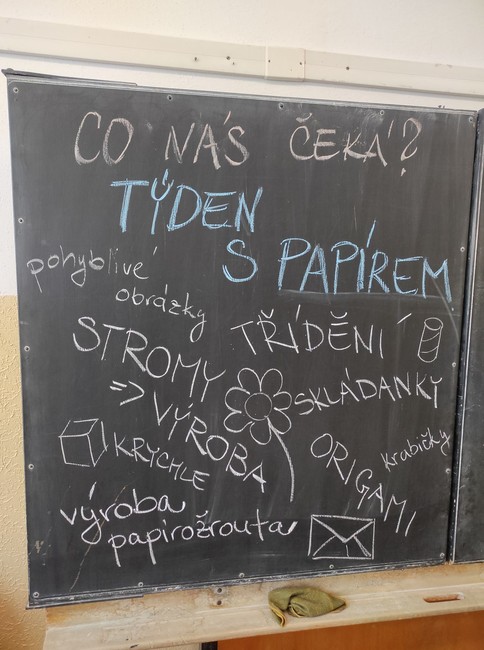 CO NÁS ČEKÁ?
TÝDEN
S PAPÍREM
pohyblivé
obrázky
STROMY
=> VÝROBA
TŘÍDĚNÍ
SKLÁDANKY
KRYCHLE
ORIGAMI
krabičky
výroba
papírožrouta